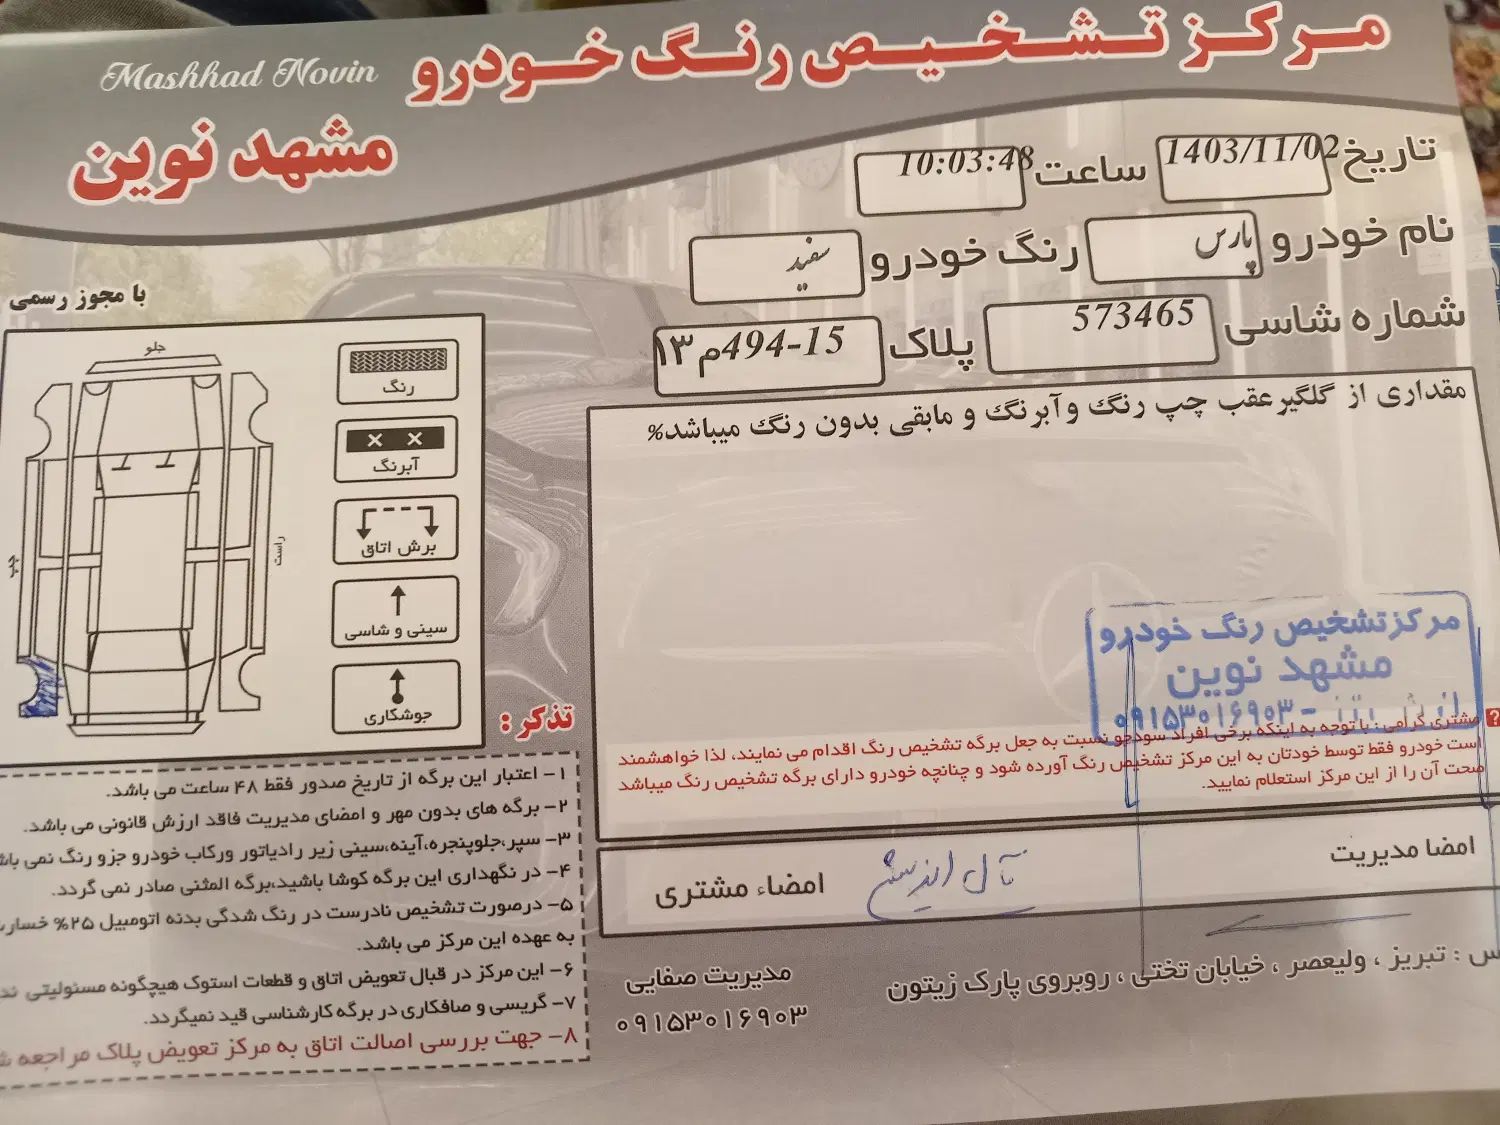 مرکز تشخیص رنگ خودرو
Mashhad Novin
مشهد نوین
تاریخ 1403/11/02 ساعت 10:03:48
نام خودرو پارس رنگ خودرو سفید
شماره شاسی 573465 پلاک 15-494م۱۳
مقداری از گلگیرعقب چپ رنگ وآبرنگ و مابقی بدون رنگ میباشد%
با مجوز رسمی
جلو
چپ
راست
رنگ
آبرنگ
برش اتاق
سینی و شاسی
جوشکاری
مرکز تشخیص رنگ خودرو
مشهد نوین
۰۹۱۵۳۰۱۶۹۰۳
مشتری گرامی : با توجه به اینکه برخی افراد سودجو نسبت به جعل برگه تشخیص رنگ اقدام می نمایند، لذا خواهشمند
است خودرو فقط توسط خودتان به این مرکز تشخیص رنگ آورده شود و چنانچه خودرو دارای برگه تشخیص رنگ میباشد
صحت آن را از این مرکز استعلام نمایید.
امضا مدیریت
امضاء مشتری
تذکر :
۱- اعتبار این برگه از تاریخ صدور فقط ۴۸ ساعت می باشد.
۲- برگه های بدون مهر و امضای مدیریت فاقد ارزش قانونی می باشد.
۳- سپر،جلوپنجره،آینه،سینی زیر رادیاتور ورکاب خودرو جزو رنگ نمی باش
۴- در نگهداری این برگه کوشا باشید،برگه المثنی صادر نمی گردد.
۵- درصورت تشخیص نادرست در رنگ شدگی بدنه اتومبیل ۲۵% خسار
به عهده این مرکز می باشد.
۶- این مرکز در قبال تعویض اتاق و قطعات استوک هیچگونه مسئولیتی ند
۷- گریسی و صافکاری در برگه کارشناسی قید نمیگردد.
۸- جهت بررسی اصالت اتاق به مرکز تعویض پلاک مراجعه ش
مدیریت صفایی
۰۹۱۵۳۰۱۶۹۰۳
س : تبریز ، ولیعصر ، خیابان تختی ، روبروی پارک زیتون